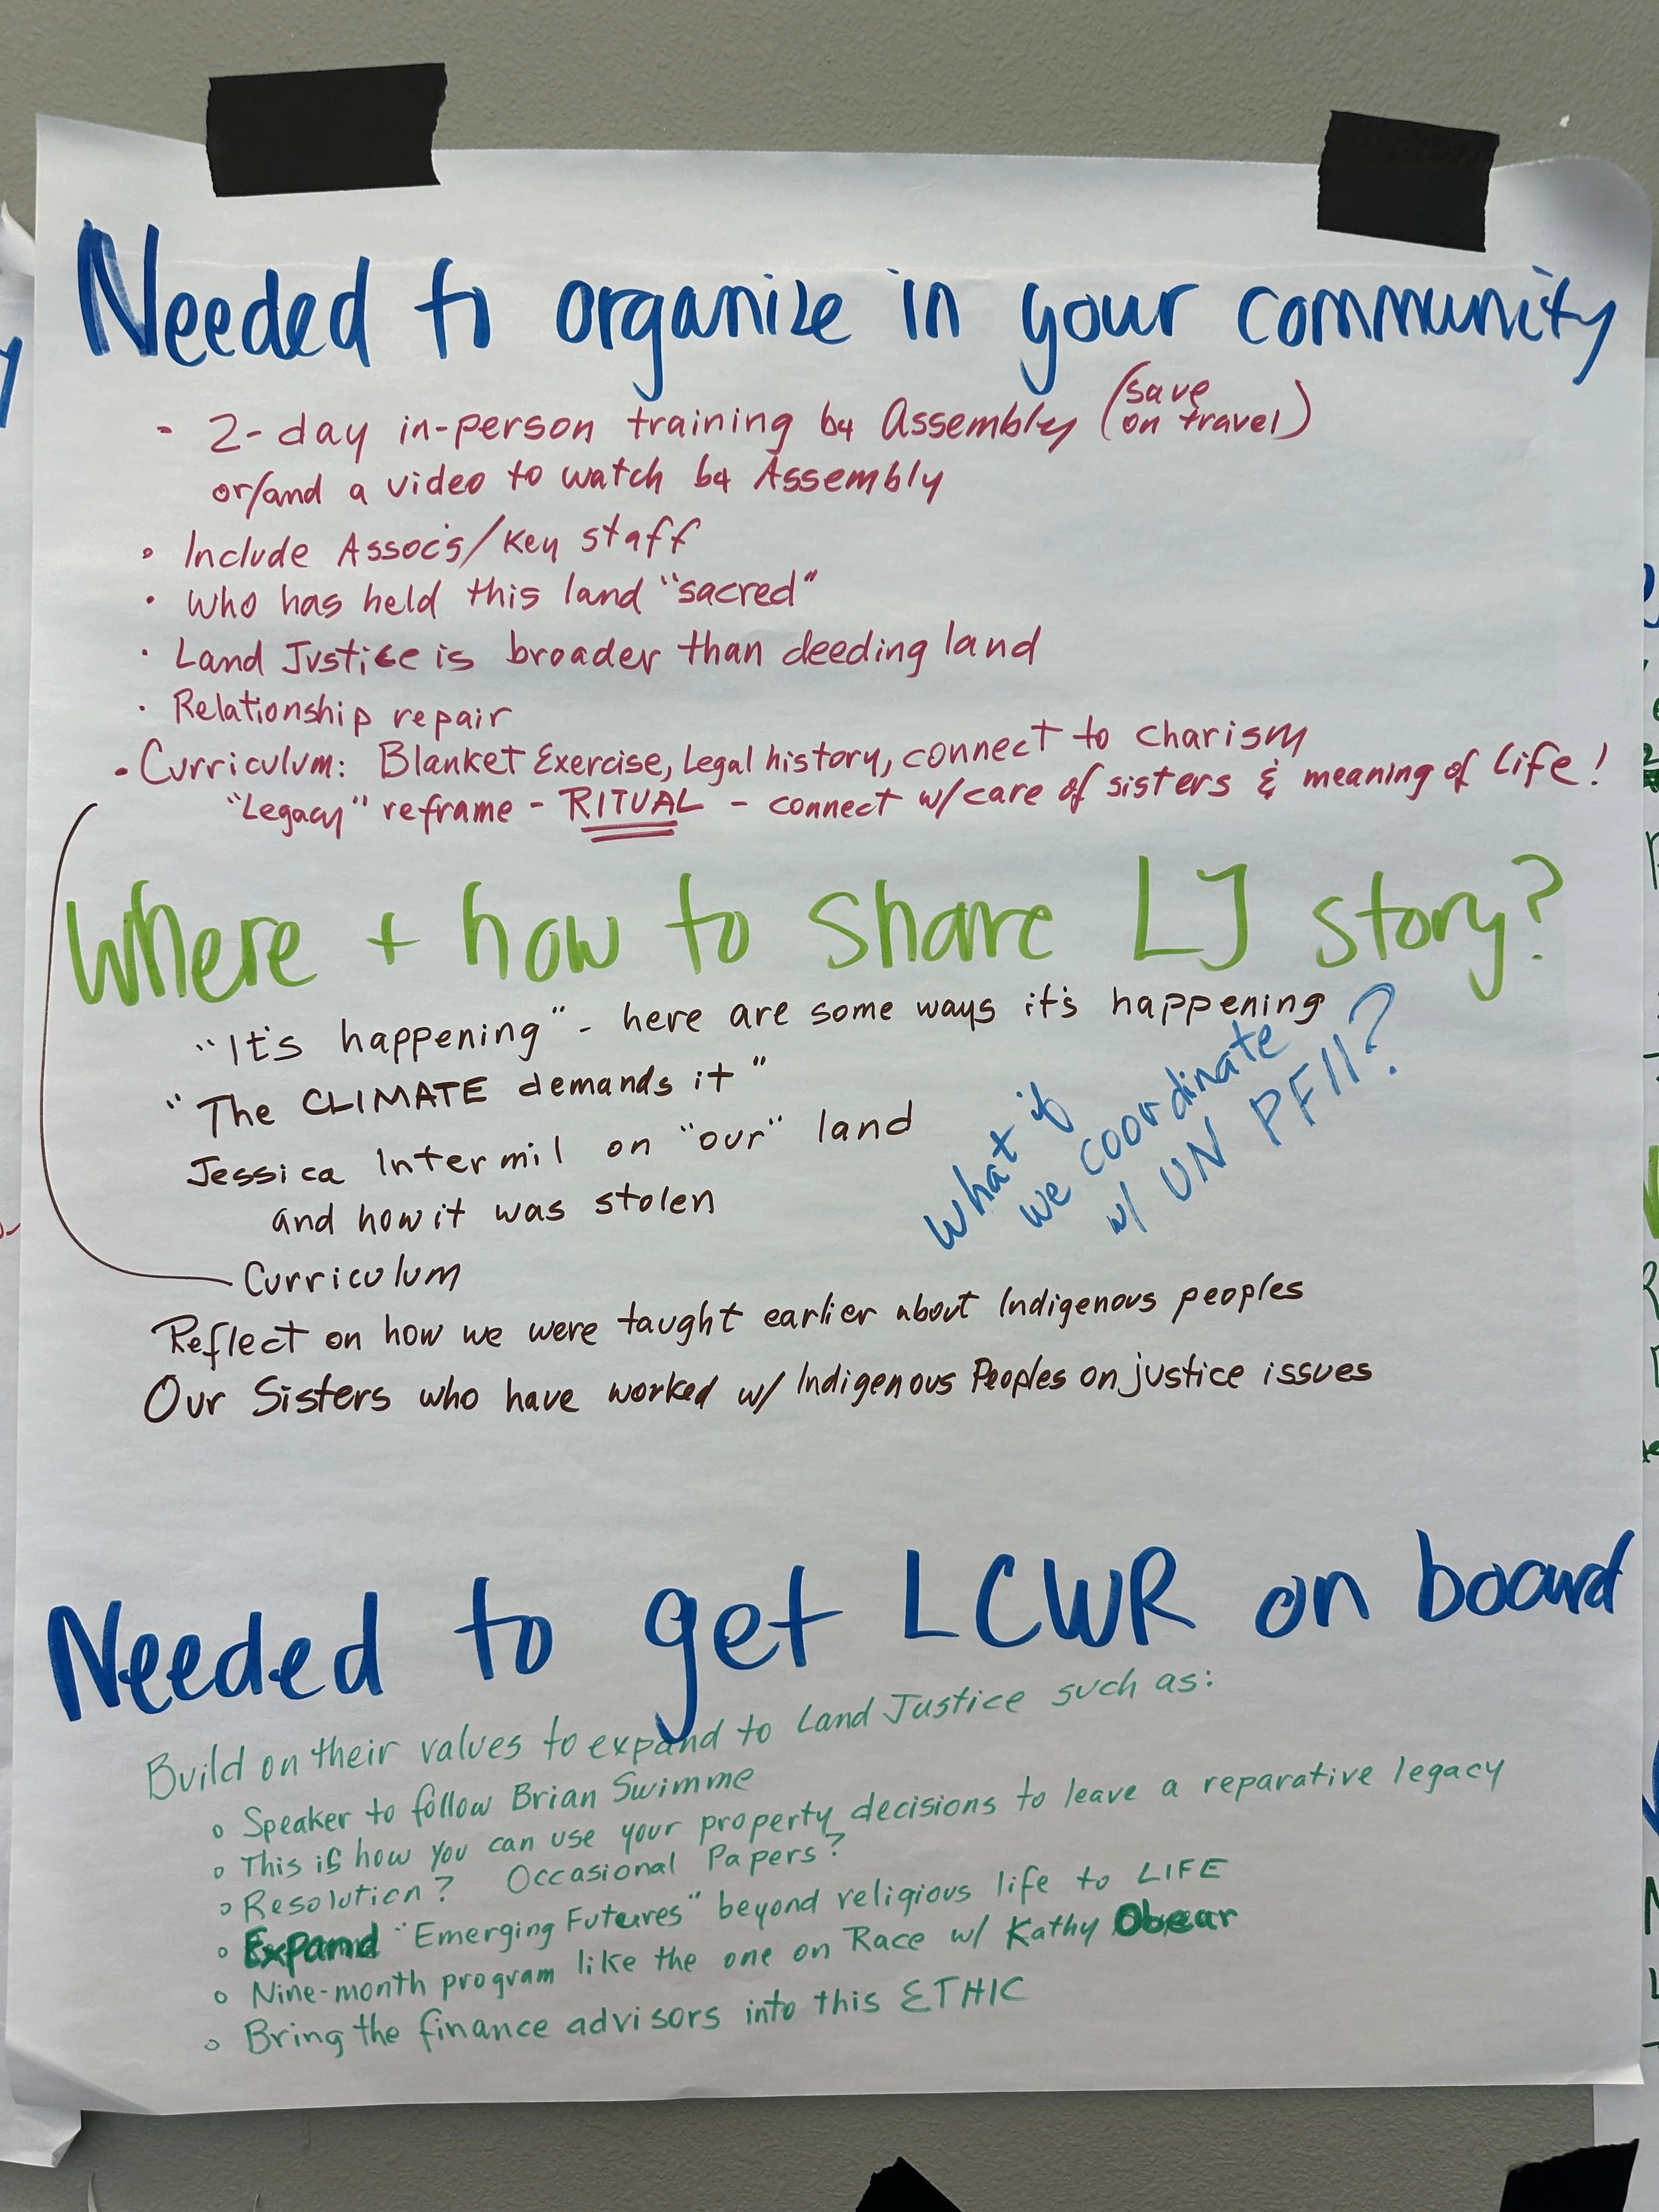 Needed to organize in your community
- 2-day in-person training b4 Assembly (save on travel)
or/and a video to watch b4 Assembly
• Include Assoc's/Key staff
• Who has held this land "sacred"
• Land Justice is broader than deeding land
• Relationship repair
• Curriculum: Blanket Exercise, Legal history, connect to charism
"Legacy" reframe - RITUAL - connect w/care of sisters & meaning of life!
Where + how to share LJ story?
"It's happening" - here are some ways it's happening
"The CLIMATE demands it"
Jessica Intermil on "our" land
and how it was stolen
What if
we coordinate
w/ UN PFII?
Curriculum
Reflect on how we were taught earlier about Indigenous peoples
Our Sisters who have worked w/ Indigenous Peoples on justice issues
Needed to get LCWR on board
Build on their values to expand to Land Justice such as:
• Speaker to follow Brian Swimme
• This is how you can use your property decisions to leave a reparative legacy
• Resolution? Occasional Papers?
• Expand "Emerging Futures" beyond religious life to LIFE
• Nine-month program like the one on Race w/ Kathy Obear
• Bring the finance advisors into this ETHIC